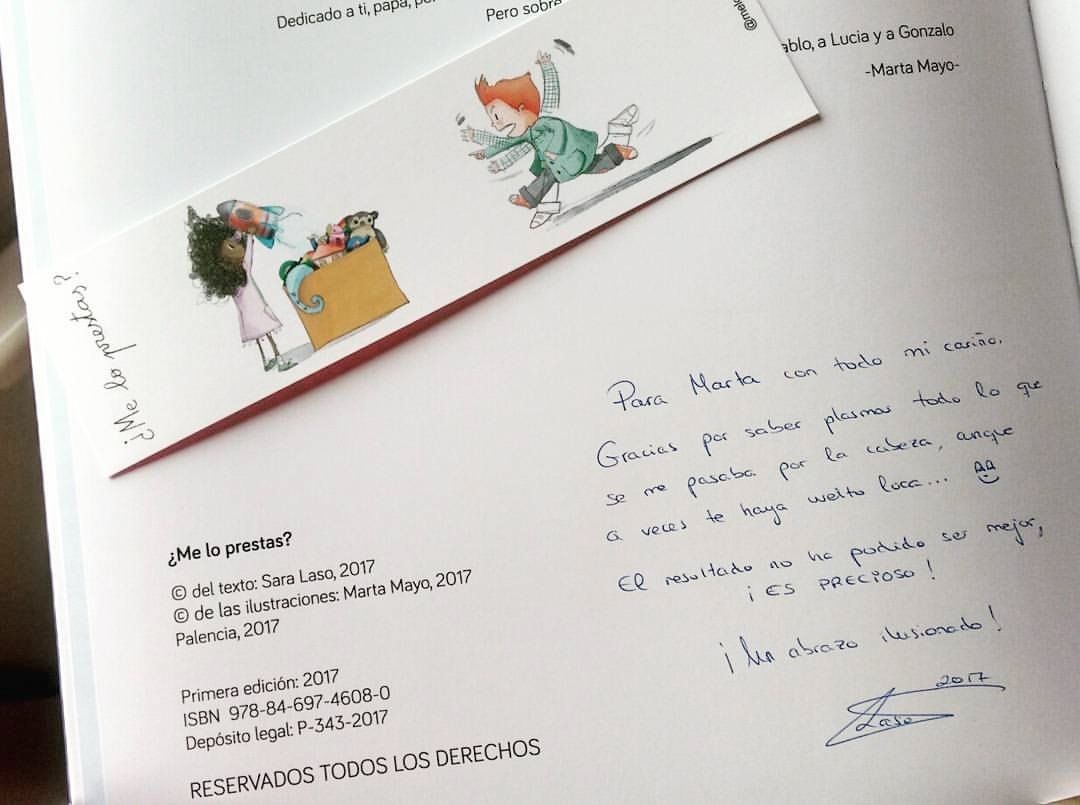 Dedicado a ti, papá,
Pero sobre
a Lucia y a Gonzalo
-Marta Mayo-
¿Me lo prestas?
Para Marta con todo mi cariño.
Gracias por saber plasmar todo lo que
se me pasaba por la cabeza, anque
a veces te haya vuelto loca...
El resultado no ha podido ser mejor,
¡ES PRECIOSO!
¡Un abrazo ilusionado!
2017
Laso
¿Me lo prestas?
© del texto: Sara Laso, 2017
© de las ilustraciones: Marta Mayo, 2017
Palencia, 2017
Primera edición: 2017
ISBN 978-84-697-4608-0
Depósito legal: P-343-2017
RESERVADOS TODOS LOS DERECHOS